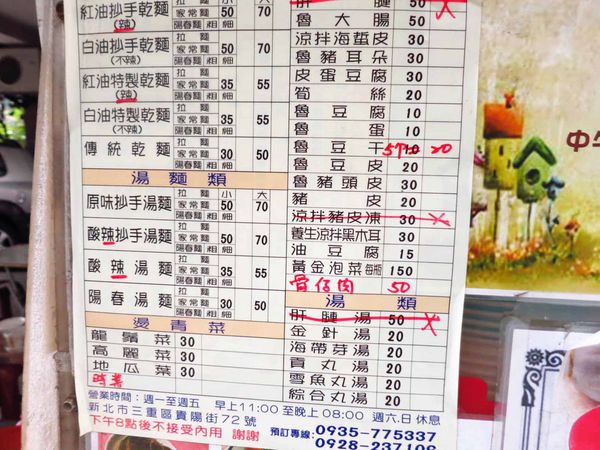 紅油抄手乾麵 (辣) 拉麵 家常麵 陽春麵 粗 細 小 50 大 70
白油抄手乾麵 (不辣) 拉麵 家常麵 陽春麵 粗 細 50 70
紅油特製乾麵 (辣) 拉麵 家常麵 陽春麵 粗 細 35 55
白油特製乾麵 (不辣) 拉麵 家常麵 陽春麵 粗 細 35 55
傳統乾麵 拉麵 家常麵 陽春麵 粗 細 30 50
湯麵類
原味抄手湯麵 拉麵 家常麵 陽春麵 粗 細 小 50 大 70
酸辣抄手湯麵 拉麵 家常麵 陽春麵 粗 細 50 70
酸辣湯麵 拉麵 家常麵 陽春麵 粗 細 35 55
陽春湯麵 拉麵 家常麵 陽春麵 粗 細 30 50
燙青菜
龍鬚菜 30
高麗菜 30
地瓜葉 30
時蔬
肝膶 50 X
魯大腸 50
涼拌海蜇皮 30
魯豬耳朵 30
皮蛋豆腐 30
筍絲 20
魯豆腐 10
魯蛋 10
魯豆干 10 20
魯豆皮 20
魯豬頭皮 30
豬皮 20
涼拌豬皮凍 30 X
養生涼拌黑木耳 30
油豆腐 15
黃金泡菜 每瓶 150
骨佰肉 50
湯類
肝膶湯 50 X
金針湯 20
海帶芽湯 20
貢丸湯 20
雪魚丸湯 20
綜合丸湯 20
營業時間：週一至週五 早上11:00至晚上08:00 週六.日休息
新北市三重區貴陽街72號
下午8點後不接受內用 謝謝 預訂專線:0935-775337
0928-237108
中午